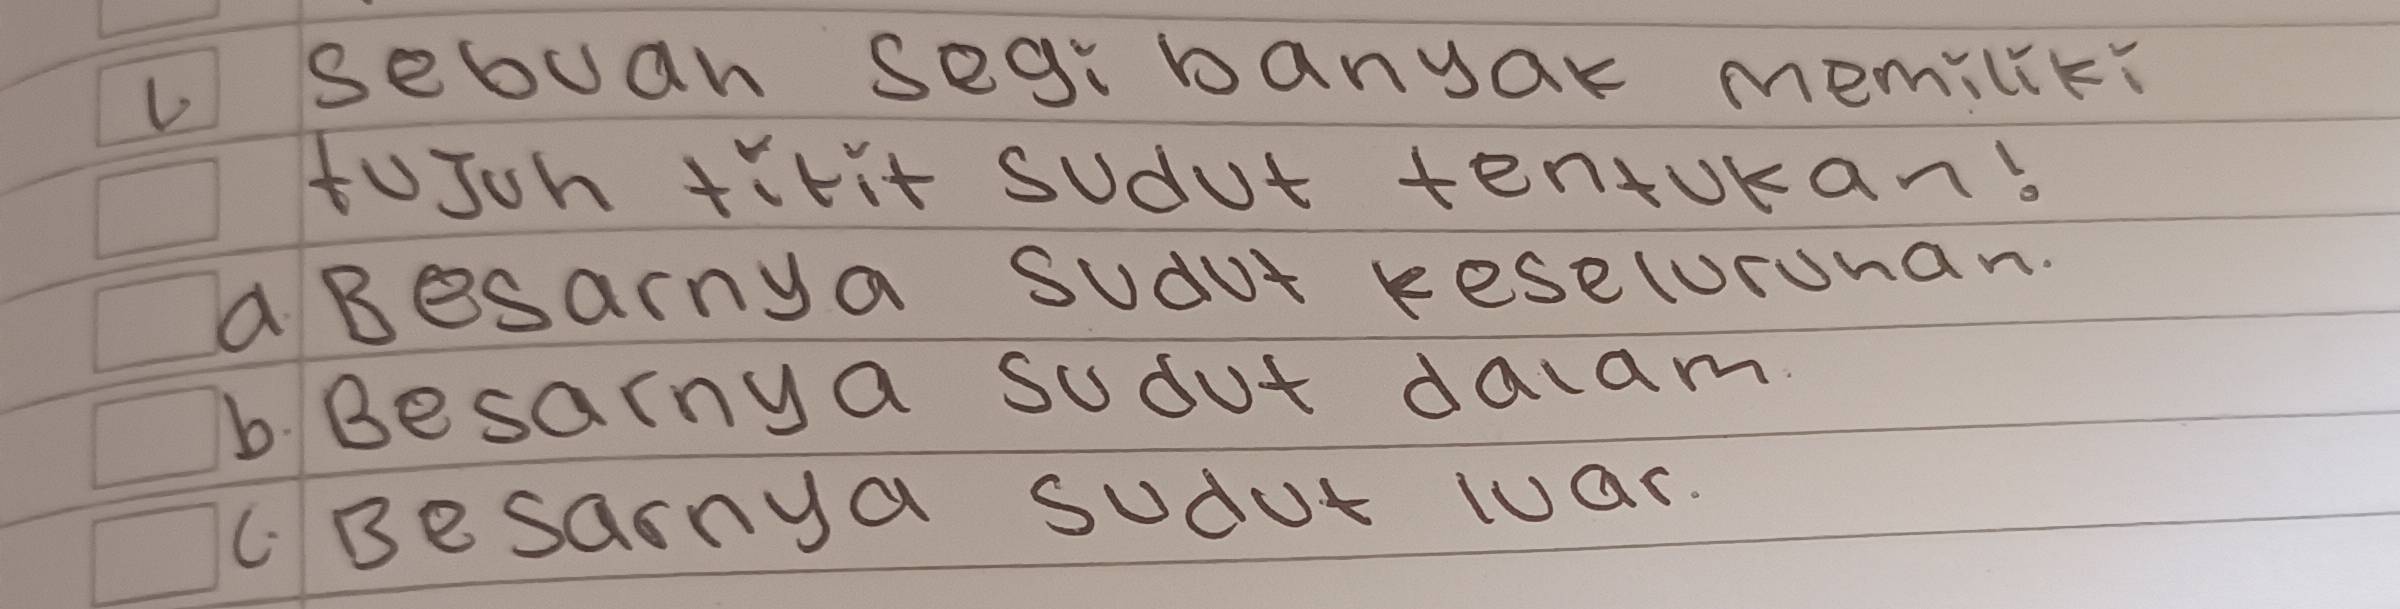 1. Sebuah segi banyak memiliki
tujuh titit sudut tentukan!
a. Besarnya sudut keseluruhan.
b. Besarnya sudut dalam.
c. Besarnya sudut luar.